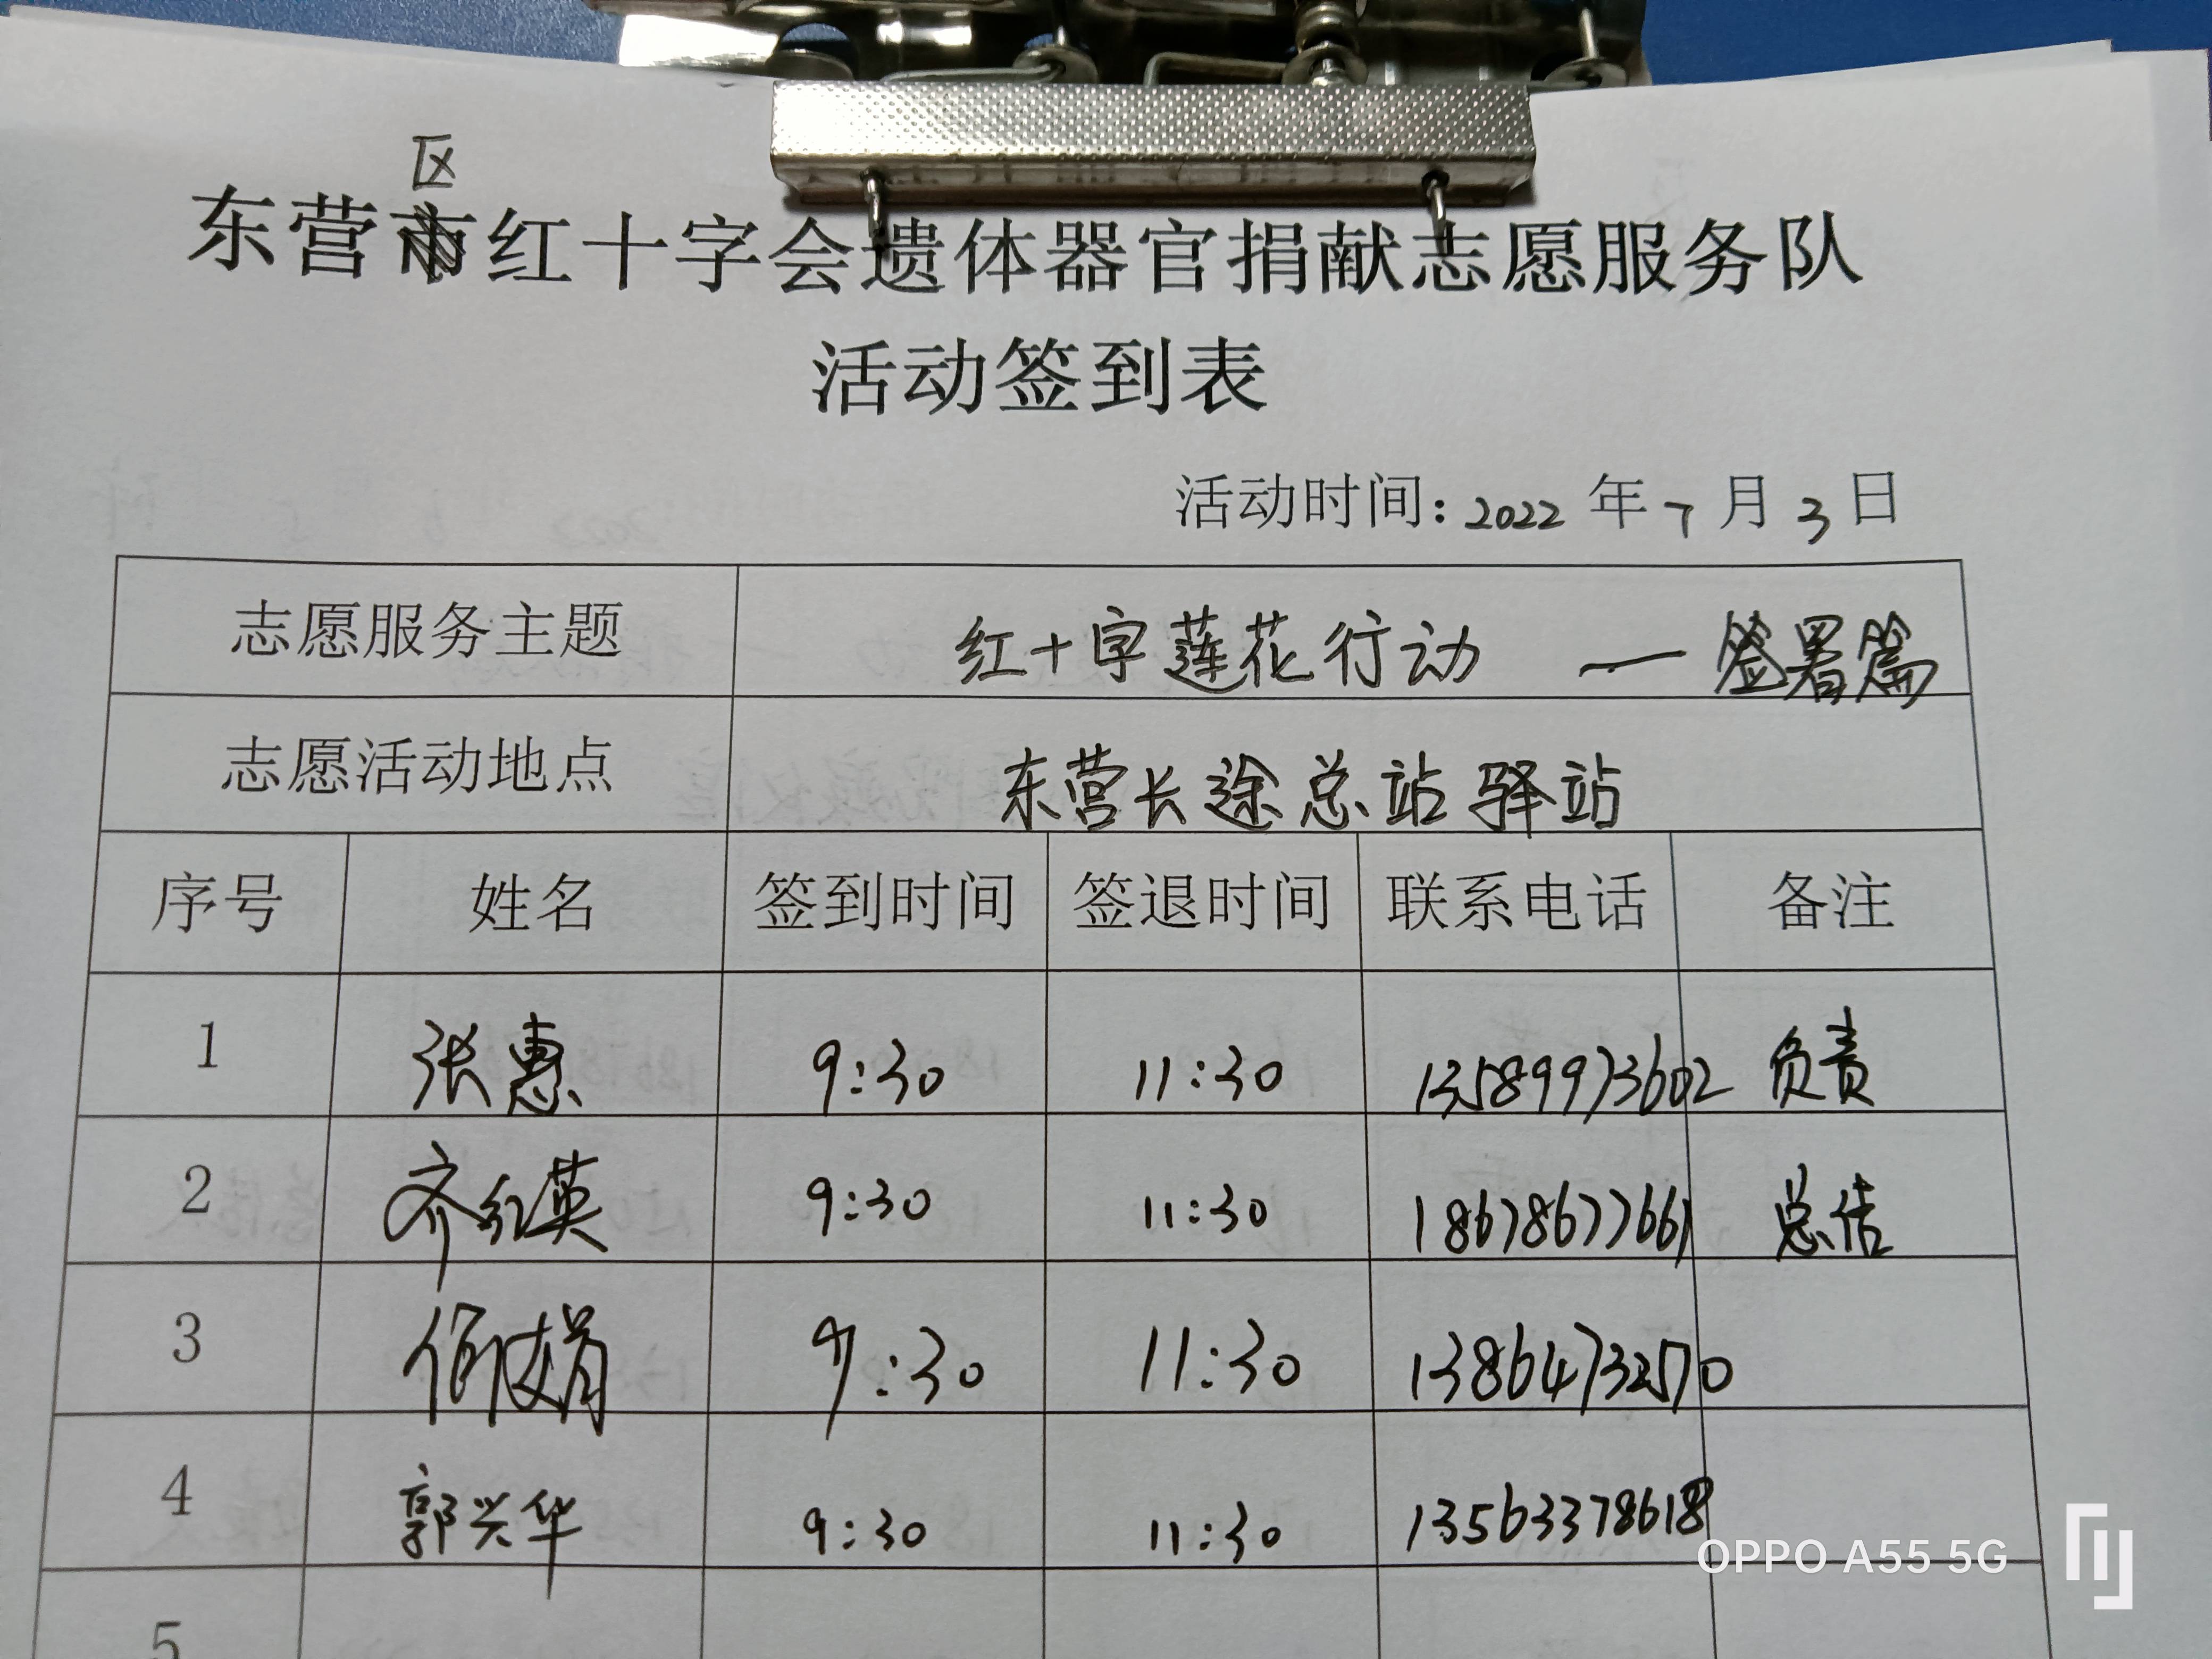 区
东营红十字会遗体器官捐献志愿服务队
活动签到表
活动时间：2022年7月3日
志愿服务主题 红十字莲花行动 — 签署篇
志愿活动地点 东营长途总站驿站
序号 姓名 签到时间 签退时间 联系电话 备注
1 张惠 9:30 11:30 13589973602 负责
2 齐红英 9:30 11:30 18678677661 总结
3 9:30 11:30 13864732570
4 郭兴华 9:30 11:30 13563378618
5
OPPO A55 5G